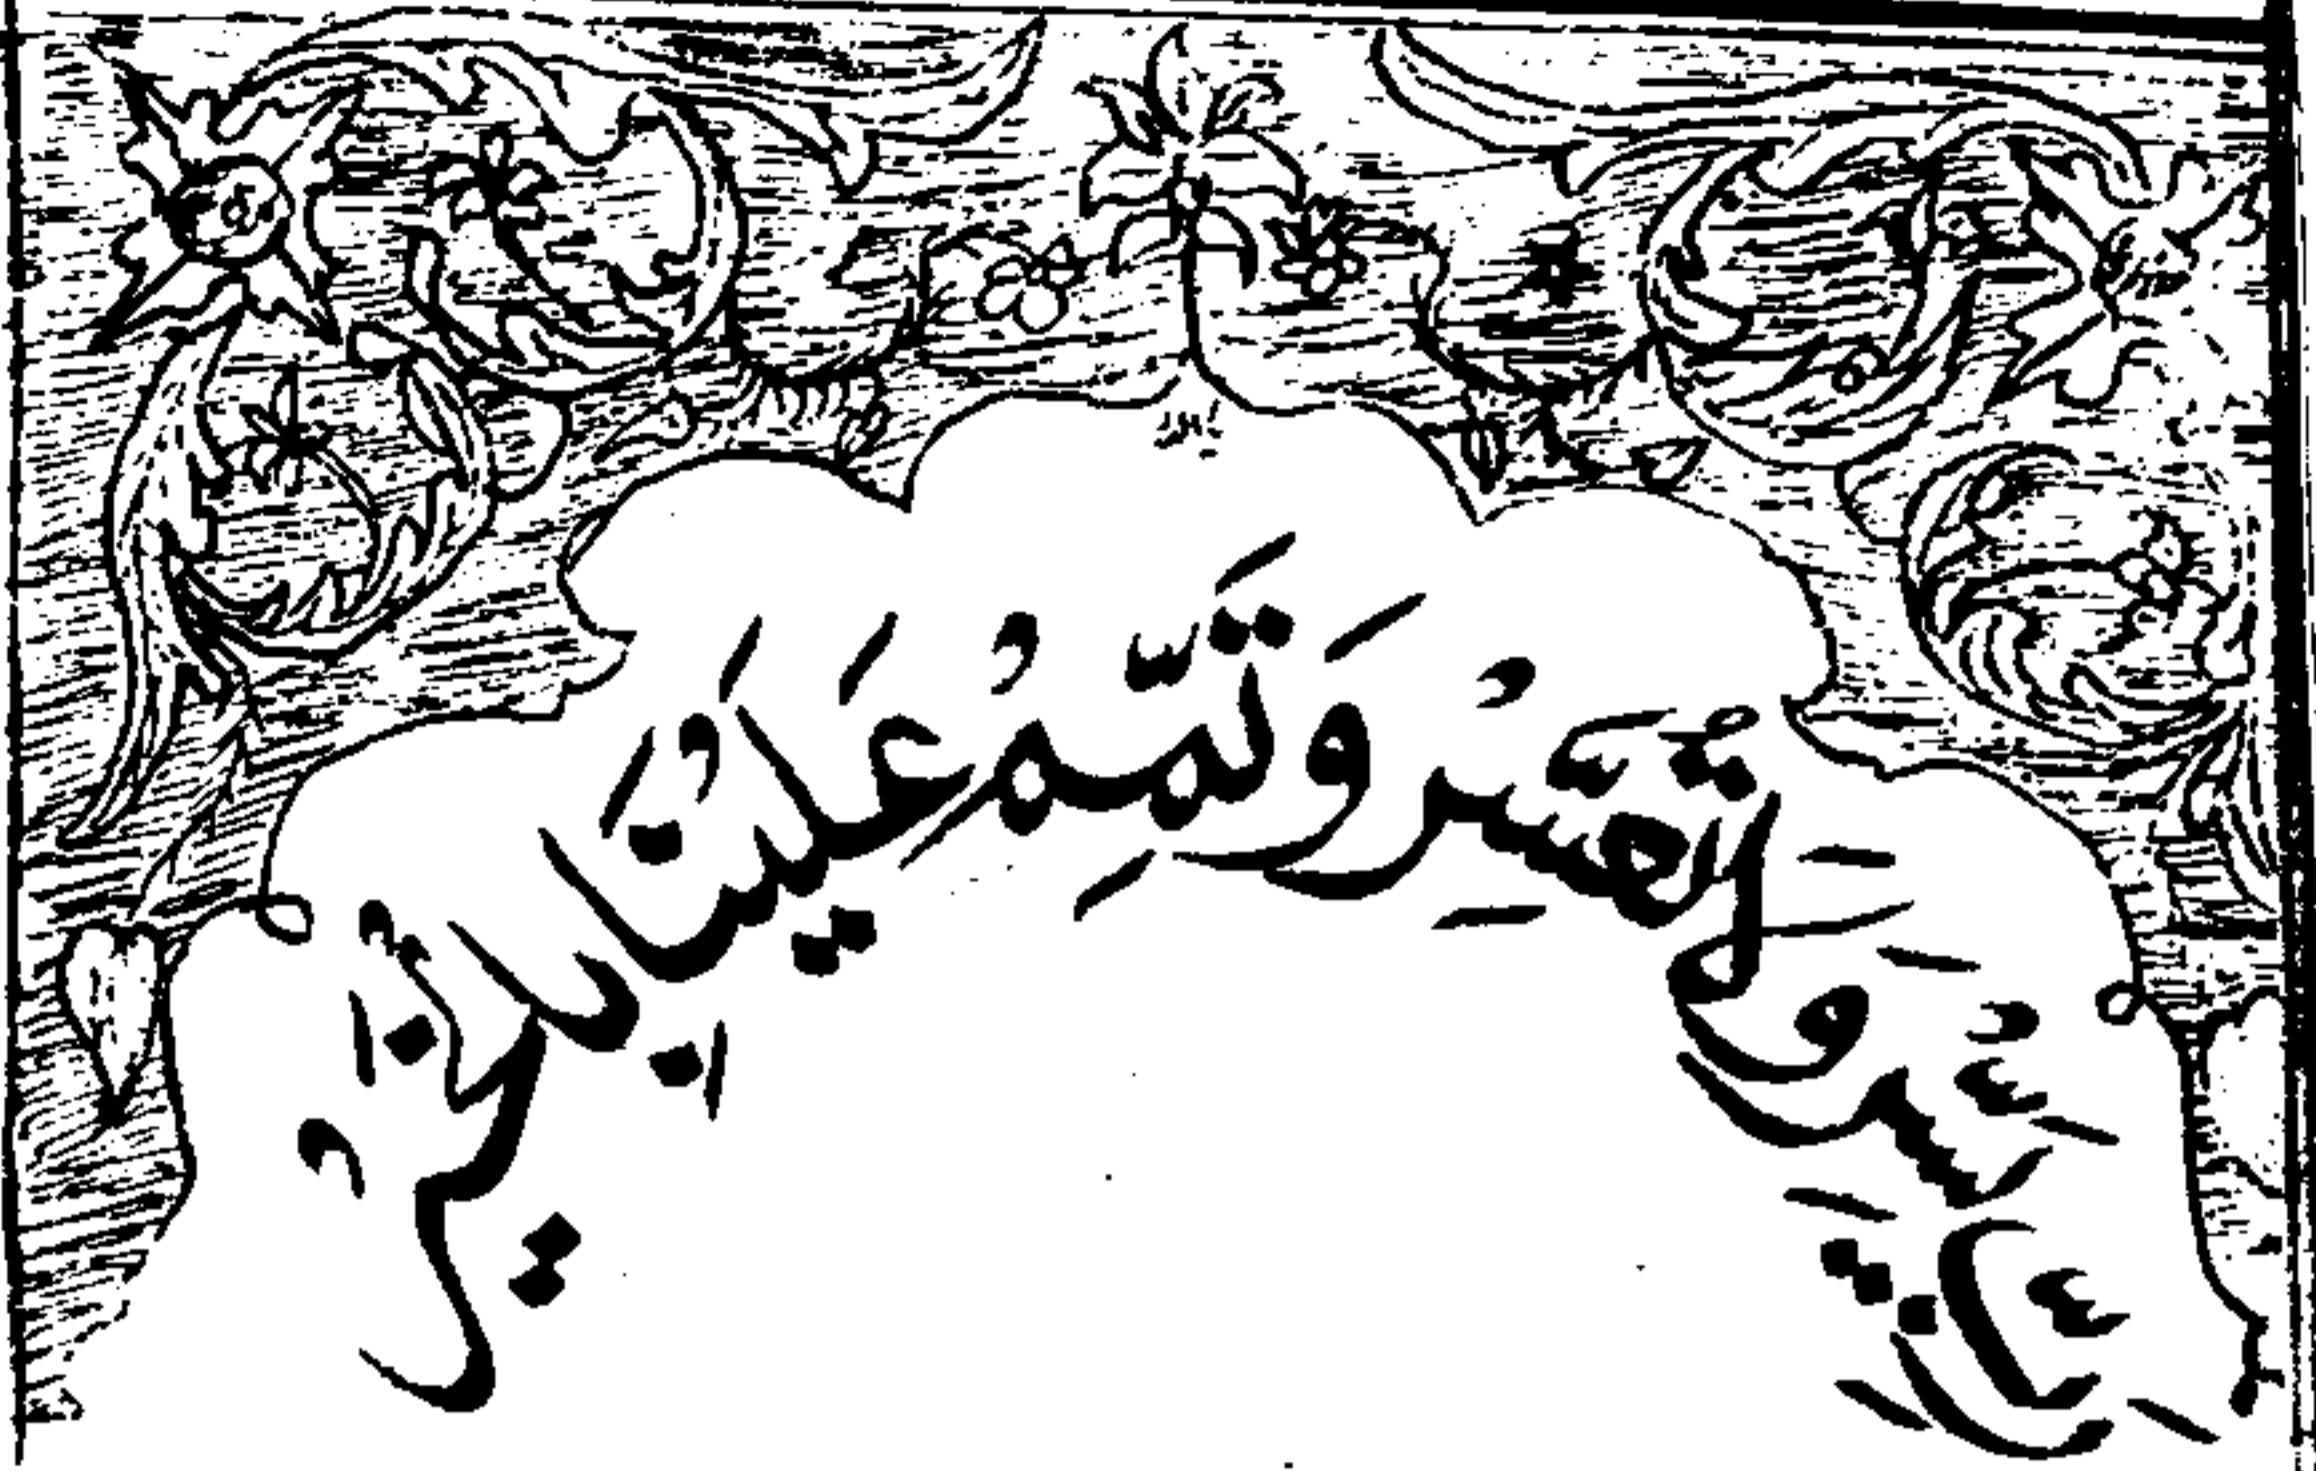 رَبِّ يَسِّرْ وَلَا تُعَسِّرْ وَتَمِّمْ عَلَيْنَا بِالْخَيْرْ